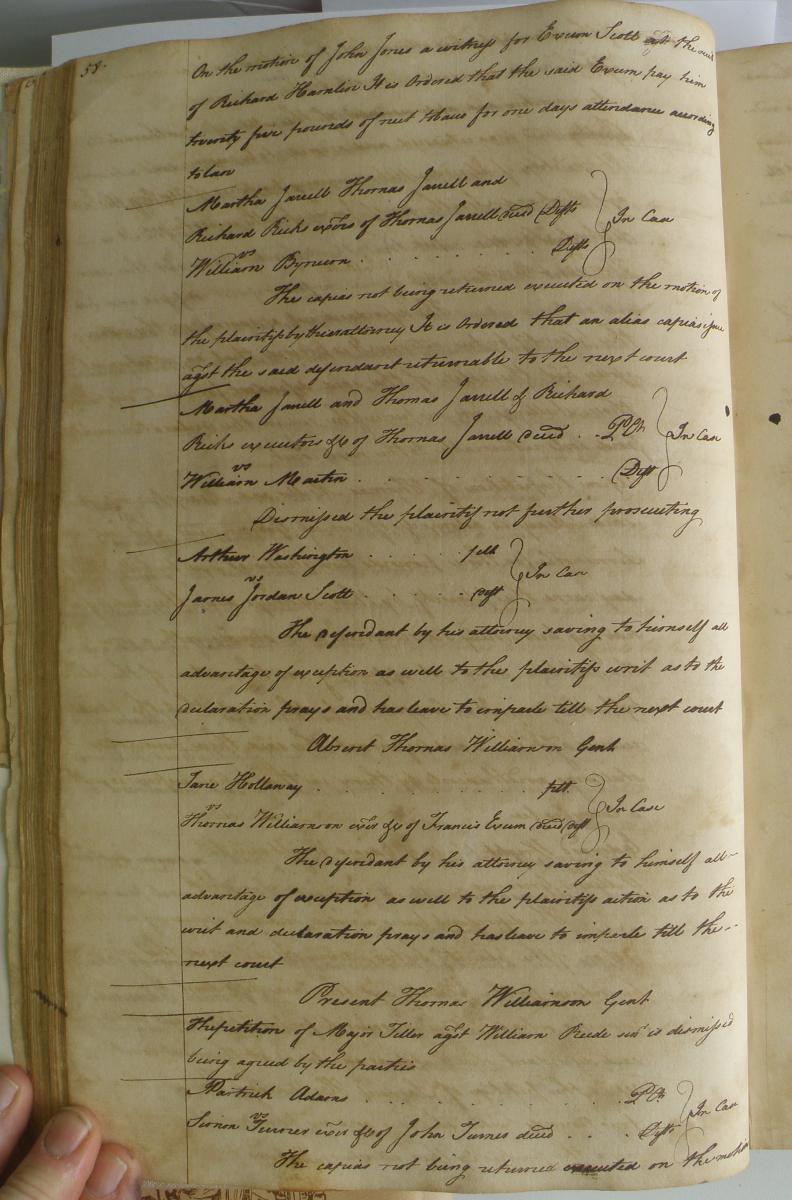 58.
On the motion of John Jones a witness for Exum Scott ats the suit
of Richard Hamlin It is Ordered that the said Exum pay him
twenty five pounds of nett tobacco for one days attendance according
to law
Martha Jarrell Thomas Jarrell and
Richard Ricks exōrs of Thomas Jarrell decd
vs
In Case
William Bynum . . . . . . . Deft
The capias not being returned executed on the motion of
the plaintifs by their attorney It is Ordered that an alias capias issue
agst the said defendant returnable to the next court
Martha Jarrell and Thomas Jarrell & Richard
Ricks executors &c of Thomas Jarrell decd . . Plt
vs
In Case
William Martin . . . . . . . Deft
Dismissed the plaintifs not further prosecuting
Arthur Washington . . . . plt
vs
In Case
James Jordan Scott . . . . Deft
The defendant by his attorney saving to himself all
advantage of exception as well to the plaintifs writ as to the
declaration prays and has leave to imparle till the next court
Absent Thomas Williamson Gent
Jane Hollaway . . . . . . . plt
vs
In Case
Thomas Williamson exr &c of Francis Exum decd Deft
The defendant by his attorney saving to himself all
advantage of exception as well to the plaintifs action as to the
writ and declaration prays and has leave to imparle till the
next court
Present Thomas Williamson Gent
The petition of Major Tiller agst William Reede senr is dismissed
being agreed by the parties
Partrick Adams . . . . . . . Plt
vs
In Case
Simon Turner exr &c of John Turner decd . . Deft
The capias not being returned executed on the motion